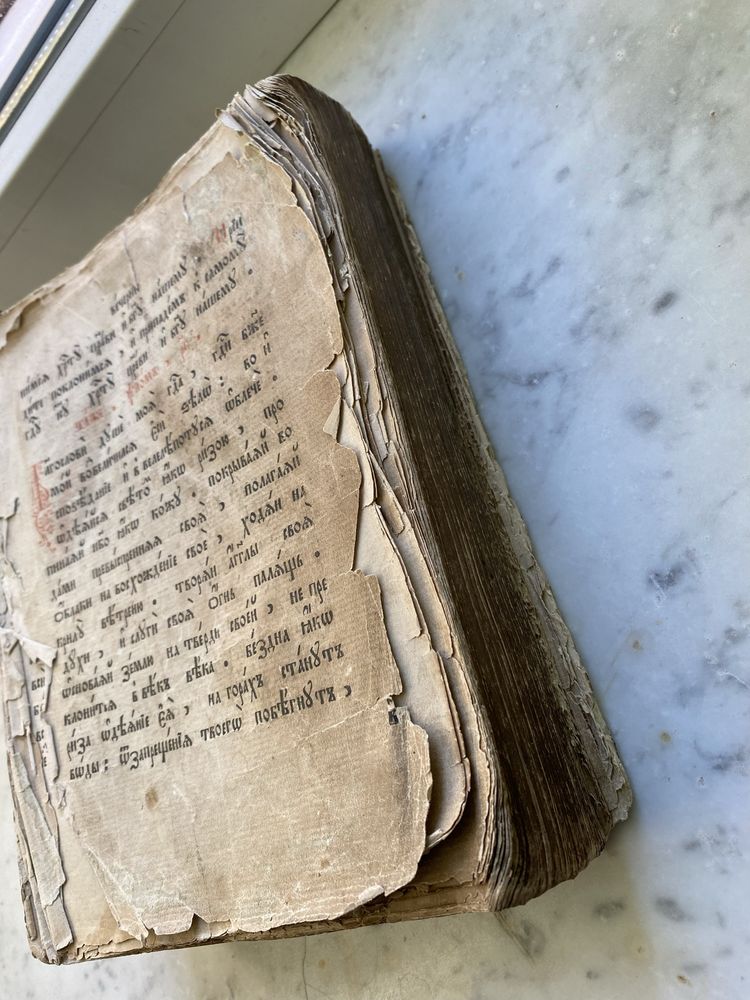 вечерни
пимсѧ хрⷭ҇тꙋ цр҃еви и҆ бг҃ꙋ на́шемꙋ . При
дѣте поклонимсѧ , и҆ припаде́мъ к самомꙋ̀
гдⷭ҇ꙋ і҆с҃ꙋ хрⷭ҇тꙋ цр҃еви и҆ бг҃ꙋ на́шемꙋ .
ѱало́мъ , рг҃ .
Благословѝ дꙋше моѧ̀ гдⷭ҇а , гдⷭ҇и бж҃е
мо́й возвели́чилсѧ є҆сѝ ѕѣлѡ̀ : во и҆
сповѣ́данїе и҆ в велелѣ́потꙋсѧ ѡ҆блече .
ѡ҆дѣ́ѧйсѧ свѣ́томъ ꙗ҆́кѡ ри́зою , про
пина́ѧй не́бо ꙗ҆́кѡ ко́жꙋ . покрыва́ѧй во
да́ми превы́спреннѧѧ своѧ̀ , полага́ѧй
ѡ҆́блаки на восхожде́нїе своѐ , ходѧ́й на
крилꙋ̀ вѣ́треню . творѧ́й а҆́гг҃лы своѧ̀
дꙋ́хи , и҆ слꙋгѝ своѧ̀ ѻ҆́гнь палѧ́щь .
ѡ҆снова́ѧй зе́млю на тве́рди свое́й , не пре
клони́тсѧ в вѣ́къ вѣ́ка . бе́здна ꙗ҆́кѡ
ри́за ѡ҆дѣѧ́нїе є҆ѧ̀ , на гора́хъ ста́нꙋтъ
во́ды : ѿ запреще́нїѧ твоегѡ̀ побѣ́гнꙋтъ ,